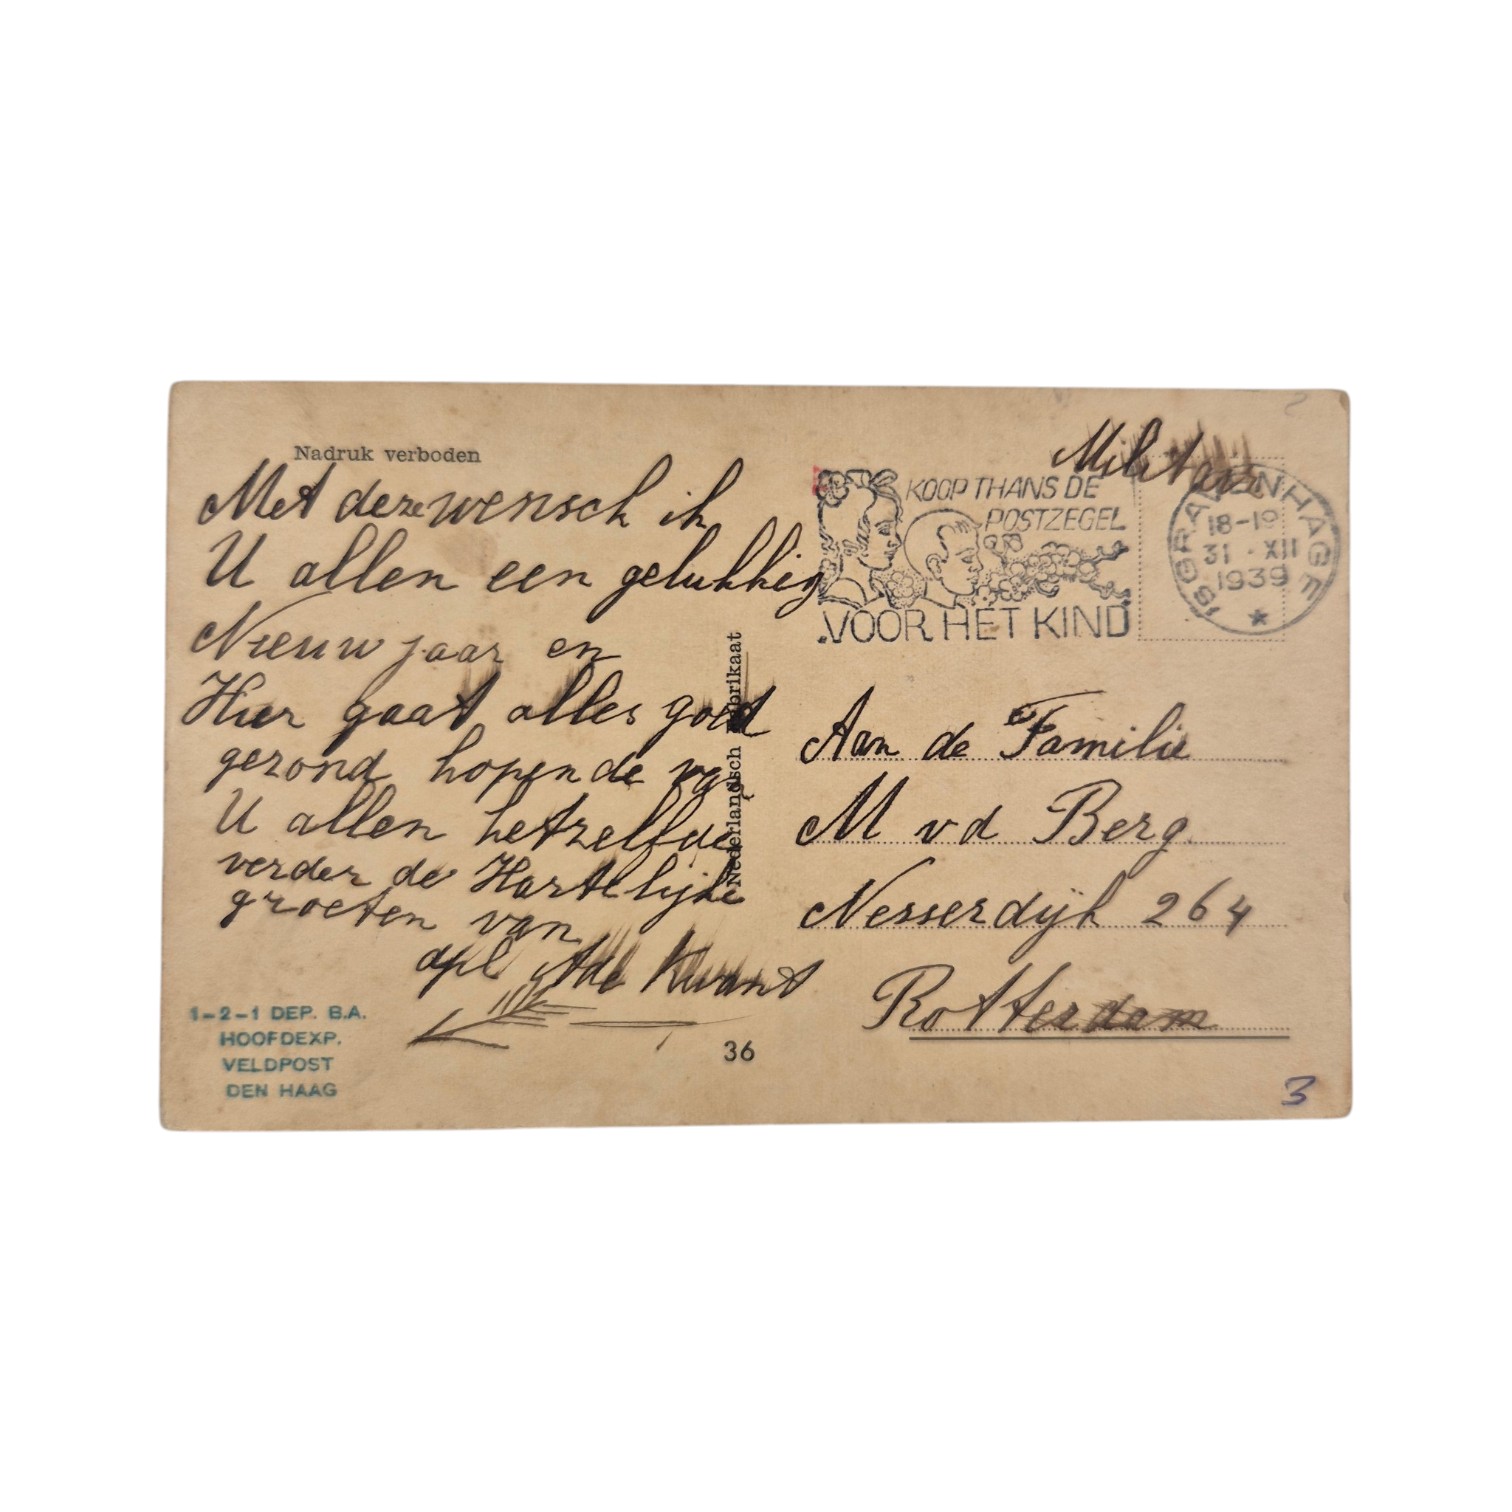 Nadruk verboden
Met deze wensch ik
U allen een gelukkig
Nieuw jaar en
Hier gaat alles goed
gezond hopende van
U allen hetzelfde
verder de Hartelijke
groeten van
dpl Ade Kwant
1-2-1 DEP. B.A.
HOOFDEXP.
VELDPOST
DEN HAAG
36
Nederlandsch Fabrikaat
Militair
KOOP THANS DE
POSTZEGEL
VOOR HET KIND
'SGRAVENHAGE
18-19
31 · XII
1939
Aan de Familie
M vd Berg
Nesserdijk 264
Rotterdam
3